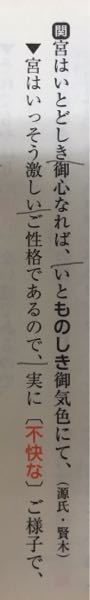 関宮はいとどしき御心なれば、いとものしき御気色にて、（源氏・賢木）
▼宮はいっそう激しいご性格であるので、実に〔不快な〕ご様子で、